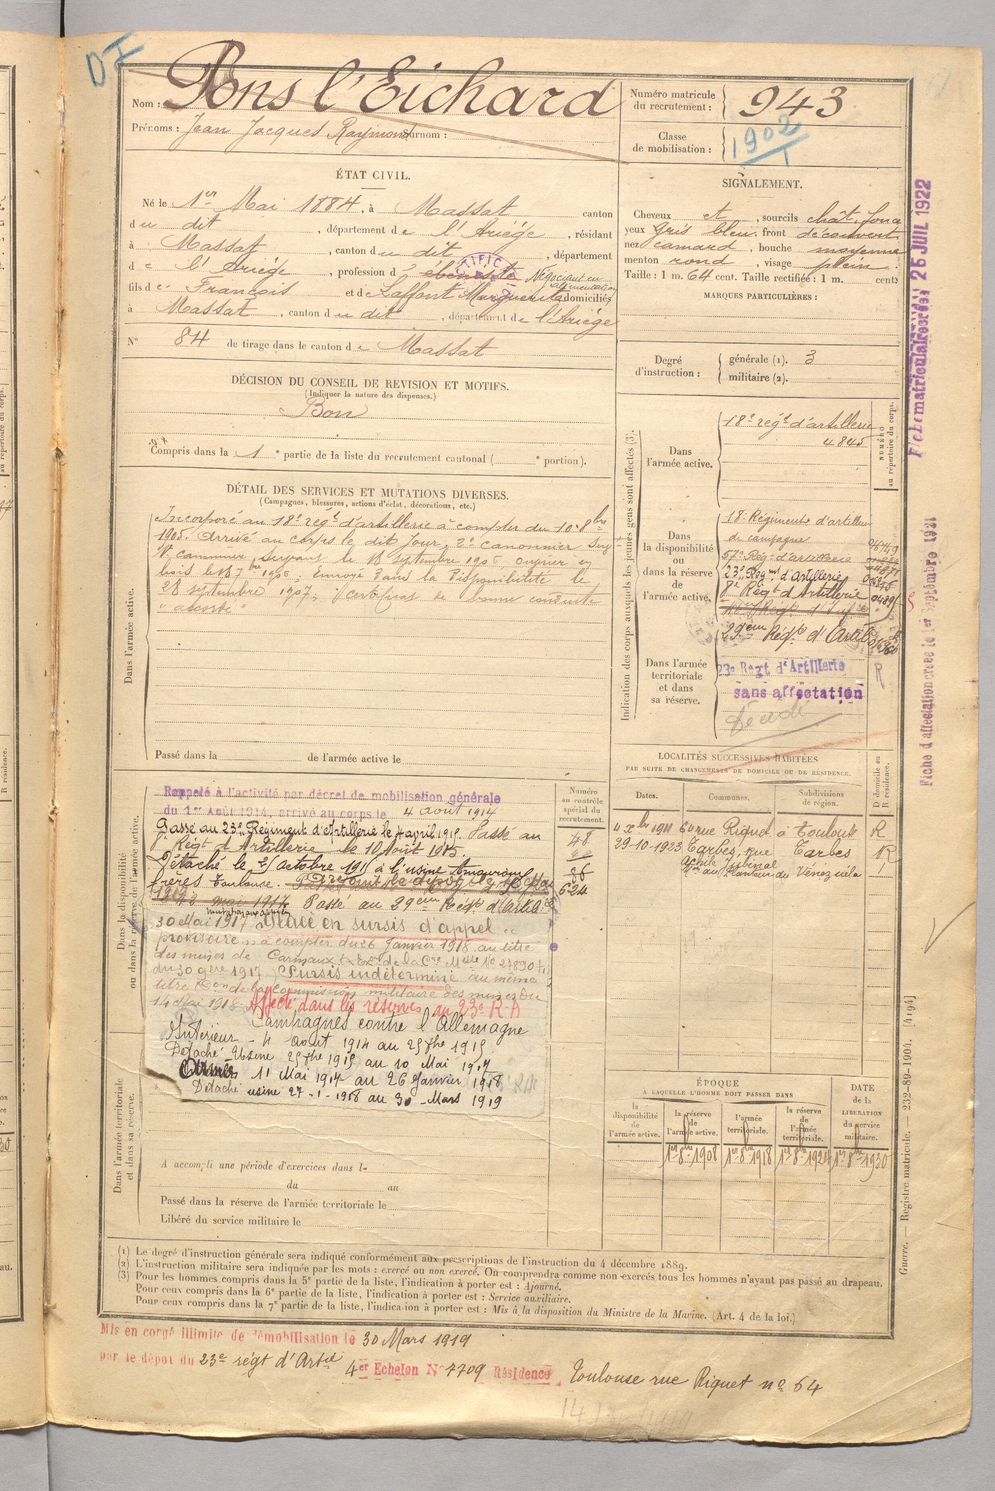 DF
Nom : Pons l'Eichard
Prénoms : Jean Jacques Raymond Surnom :
Numéro matricule du recrutement : 943
Classe de mobilisation : 1902
ÉTAT CIVIL.
Né le 1er Mai 1884, à Massat canton
du dit, département de l'Ariège, résidant
à Massat, canton du dit, département
de l'Ariège, profession d' ébéniste Négociant en alimentation
fils de François et de Laffont Marguerite domiciliés
à Massat, canton du dit, département de l'Ariège
N° 84 de tirage dans le canton de Massat
SIGNALEMENT.
Cheveux et, sourcils chât. foncé
yeux gris bleu, front découvert
nez camard, bouche moyenne
menton rond, visage plein.
Taille : 1 m. 64 cent. Taille rectifiée : 1 m. cent.
MARQUES PARTICULIÈRES :
Degré d'instruction : générale (1). 3
militaire (2).
DÉCISION DU CONSEIL DE REVISION ET MOTIFS.
(Indiquer la nature des dispenses.)
Bon
Compris dans la 1e partie de la liste du recrutement cantonal ( e portion).
DÉTAIL DES SERVICES ET MUTATIONS DIVERSES.
(Campagnes, blessures, actions d'éclat, décorations, etc.)
Dans l'armée active.
Incorporé au 18e régt d'artillerie à compter du 10 8bre
1905. Arrivé au corps le dit jour, 2e canonnier
le 18 septembre 1906
bois le 1906. Envoyé dans la disponibilité le
28 septembre 1907. Certificat de bonne conduite
"accordé"
Passé dans la de l'armée active le
Indication des corps auxquels les jeunes gens sont affectés (3).
NUMÉRO au répertoire du corps.
Dans l'armée active.
18e régt d'artillerie
4845
Dans la disponibilité ou dans la réserve de l'armée active.
18e Régiment d'artillerie
de campagne
57e Régt d'artillerie
23e Régmt d'Artillerie
Régt d'Artillerie
29em Régt d'Artie
Dans l'armée territoriale et dans sa réserve.
23e Régt d'Artillerie
sans affectation
R
LOCALITÉS SUCCESSIVES HABITÉES
PAR SUITE DE CHANGEMENTS DE DOMICILE OU DE RÉSIDENCE.
Dates. Communes. Subdivisions de région. D domicile ou R résidence.
4 Xbre 1911 64 rue Riquet à Toulouse R
29-10-1923 Tarbes, rue Tarbes R
Dans la disponibilité ou dans la réserve de l'armée active.
Numéro au contrôle spécial du recrutement.
Rappelé à l'activité par décret de mobilisation générale
du 1er Août 1914, arrivé au corps le 4 août 1914
Passé au 23e Régiment d'Artillerie le 4 avril 1915. Passé au
Régt d'Artillerie le 10 Août 1915.
Détaché le 25 octobre 1915 à l'usine Amouroux
frères Toulouse.
Passé au 29em Régt d'Artie
48
86
624
30 Mai 1917 Placé en sursis d'appel
provisoire, à compter du 26 Janvier 1918 au titre
des mines de Carmaux
du 30 9bre 1917 Sursis indéterminé au même
titre Don de la commission militaire des mines du
14 Mai 1918 Affecté dans les réserves au 23e R A
Campagnes contre l'Allemagne
Intérieur - 4 Août 1914 au 25 7bre 1915
Détaché Usine 25 7bre 1915 au 10 Mai 1917
Armées 11 Mai 1917 au 26 Janvier 1918
Détaché usine 27-1-1918 au 30 - Mars 1919
Dans l'armée territoriale et dans sa réserve.
A accompli une période d'exercices dans l-
du au
Passé dans la réserve de l'armée territoriale le
Libéré du service militaire le
ÉPOQUE
A LAQUELLE L'HOMME DOIT PASSER DANS
la disponibilité de l'armée active. la réserve de l'armée active. l'armée territoriale. la réserve de l'armée territoriale. DATE de la LIBÉRATION du service militaire.
1er 8bre 1908 1er 8bre 1918 1er 8bre 1924 1er 8bre 1930
(1) Le degré d'instruction générale sera indiqué conformément aux prescriptions de l'instruction du 4 décembre 1889.
(2) L'instruction militaire sera indiquée par les mots : exercé ou non exercé. On comprendra comme non exercés tous les hommes n'ayant pas passé au drapeau.
(3) Pour les hommes compris dans la 5e partie de la liste, l'indication à porter est : Ajourné.
Pour ceux compris dans la 6e partie de la liste, l'indication à porter est : Service auxiliaire.
Pour ceux compris dans la 7e partie de la liste, l'indication à porter est : Mis à la disposition du Ministre de la Marine. (Art. 4 de la loi.)
Mis en congé illimité de démobilisation le 30 Mars 1919
par le dépôt du 23e régt d'Artie 4er Echelon N° 7709 Résidence Toulouse rue Riquet n° 64
Fiche matriculaire créée 25 JUIL 1922
Fiche d'affectation créée le 1er Septembre 1921
Guerre. Registre matricule. — 232-89-1904. [4194]